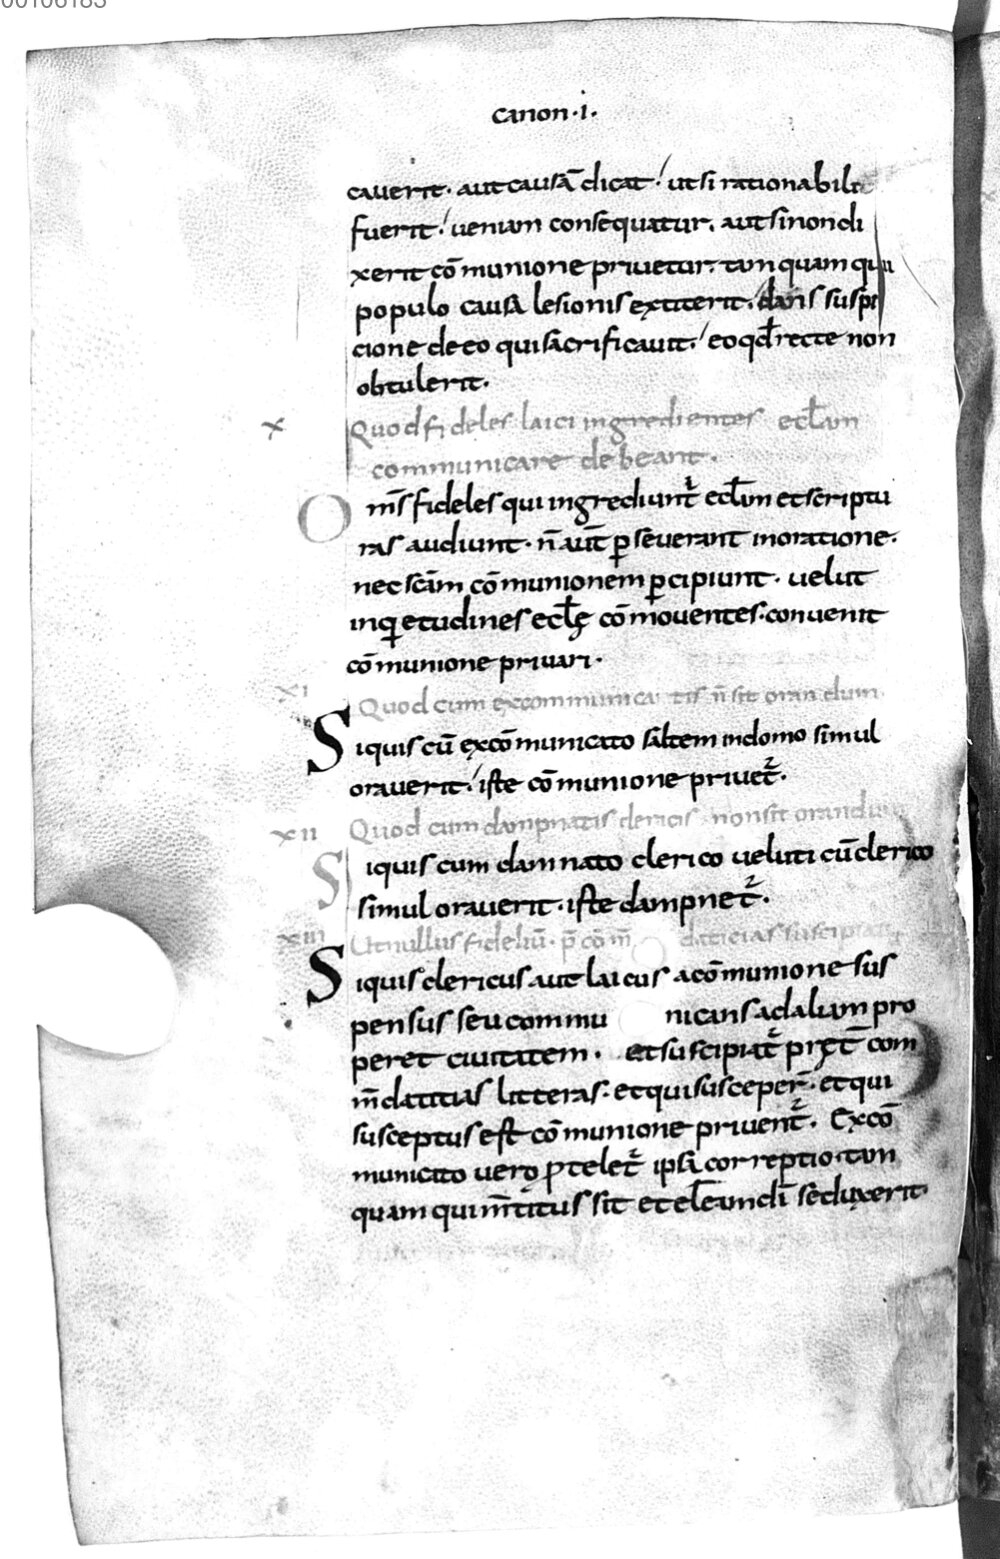 00106183
canon·i·
cauerit· aut causā dicat! ut si rationabilis
fuerit! ueniam consequatur· aut si non di
xerit cōmunione priuetur· tam quam qui
populo causa lesionis extiterit· dans suspi
cione de eo qui sacrificauit! eo qđ recte non
obtulerit·
x Quod fideles laici ingredientes eccłam
communicare debeant·
Oms̄ fideles qui ingrediunt᷑ eccłam et scriptu
ras audiunt· n̄ aūt ꝑseuerant in oratione·
nec scām cōmunionem ꝑcipiunt· uelut
inq̄etudines eccłę cōmouentes· conuenit
cōmunione priuari·
xi Quod cum excommunicatis n̄ sit orandum
Siquis cū excōmunicato saltem in domo simul
orauerit! iste cōmunione priuet᷑·
xii Quod cum dampnatis clericis non sit orandum
Siquis cum damnato clerico ueluti cū clerico
simul orauerit· iste dampnet᷑·
xiii Ut nullus fideliū· p̄ cōm̄ daticias suscipiat
Siquis clericus aut laicus a cōmunione sus
pensus seu commu nicans ad aliam pro
peret ciuitatem· et suscipiat᷑ pręt̄ com
m̄daticias litteras· et qui susceper̄· et qui
susceptus est cōmunione priuent᷑· Excō
municato uero ꝓtelet᷑ ipsa correptio· tam
quam qui m̄titus sit et ecłeam dī seduxerit·